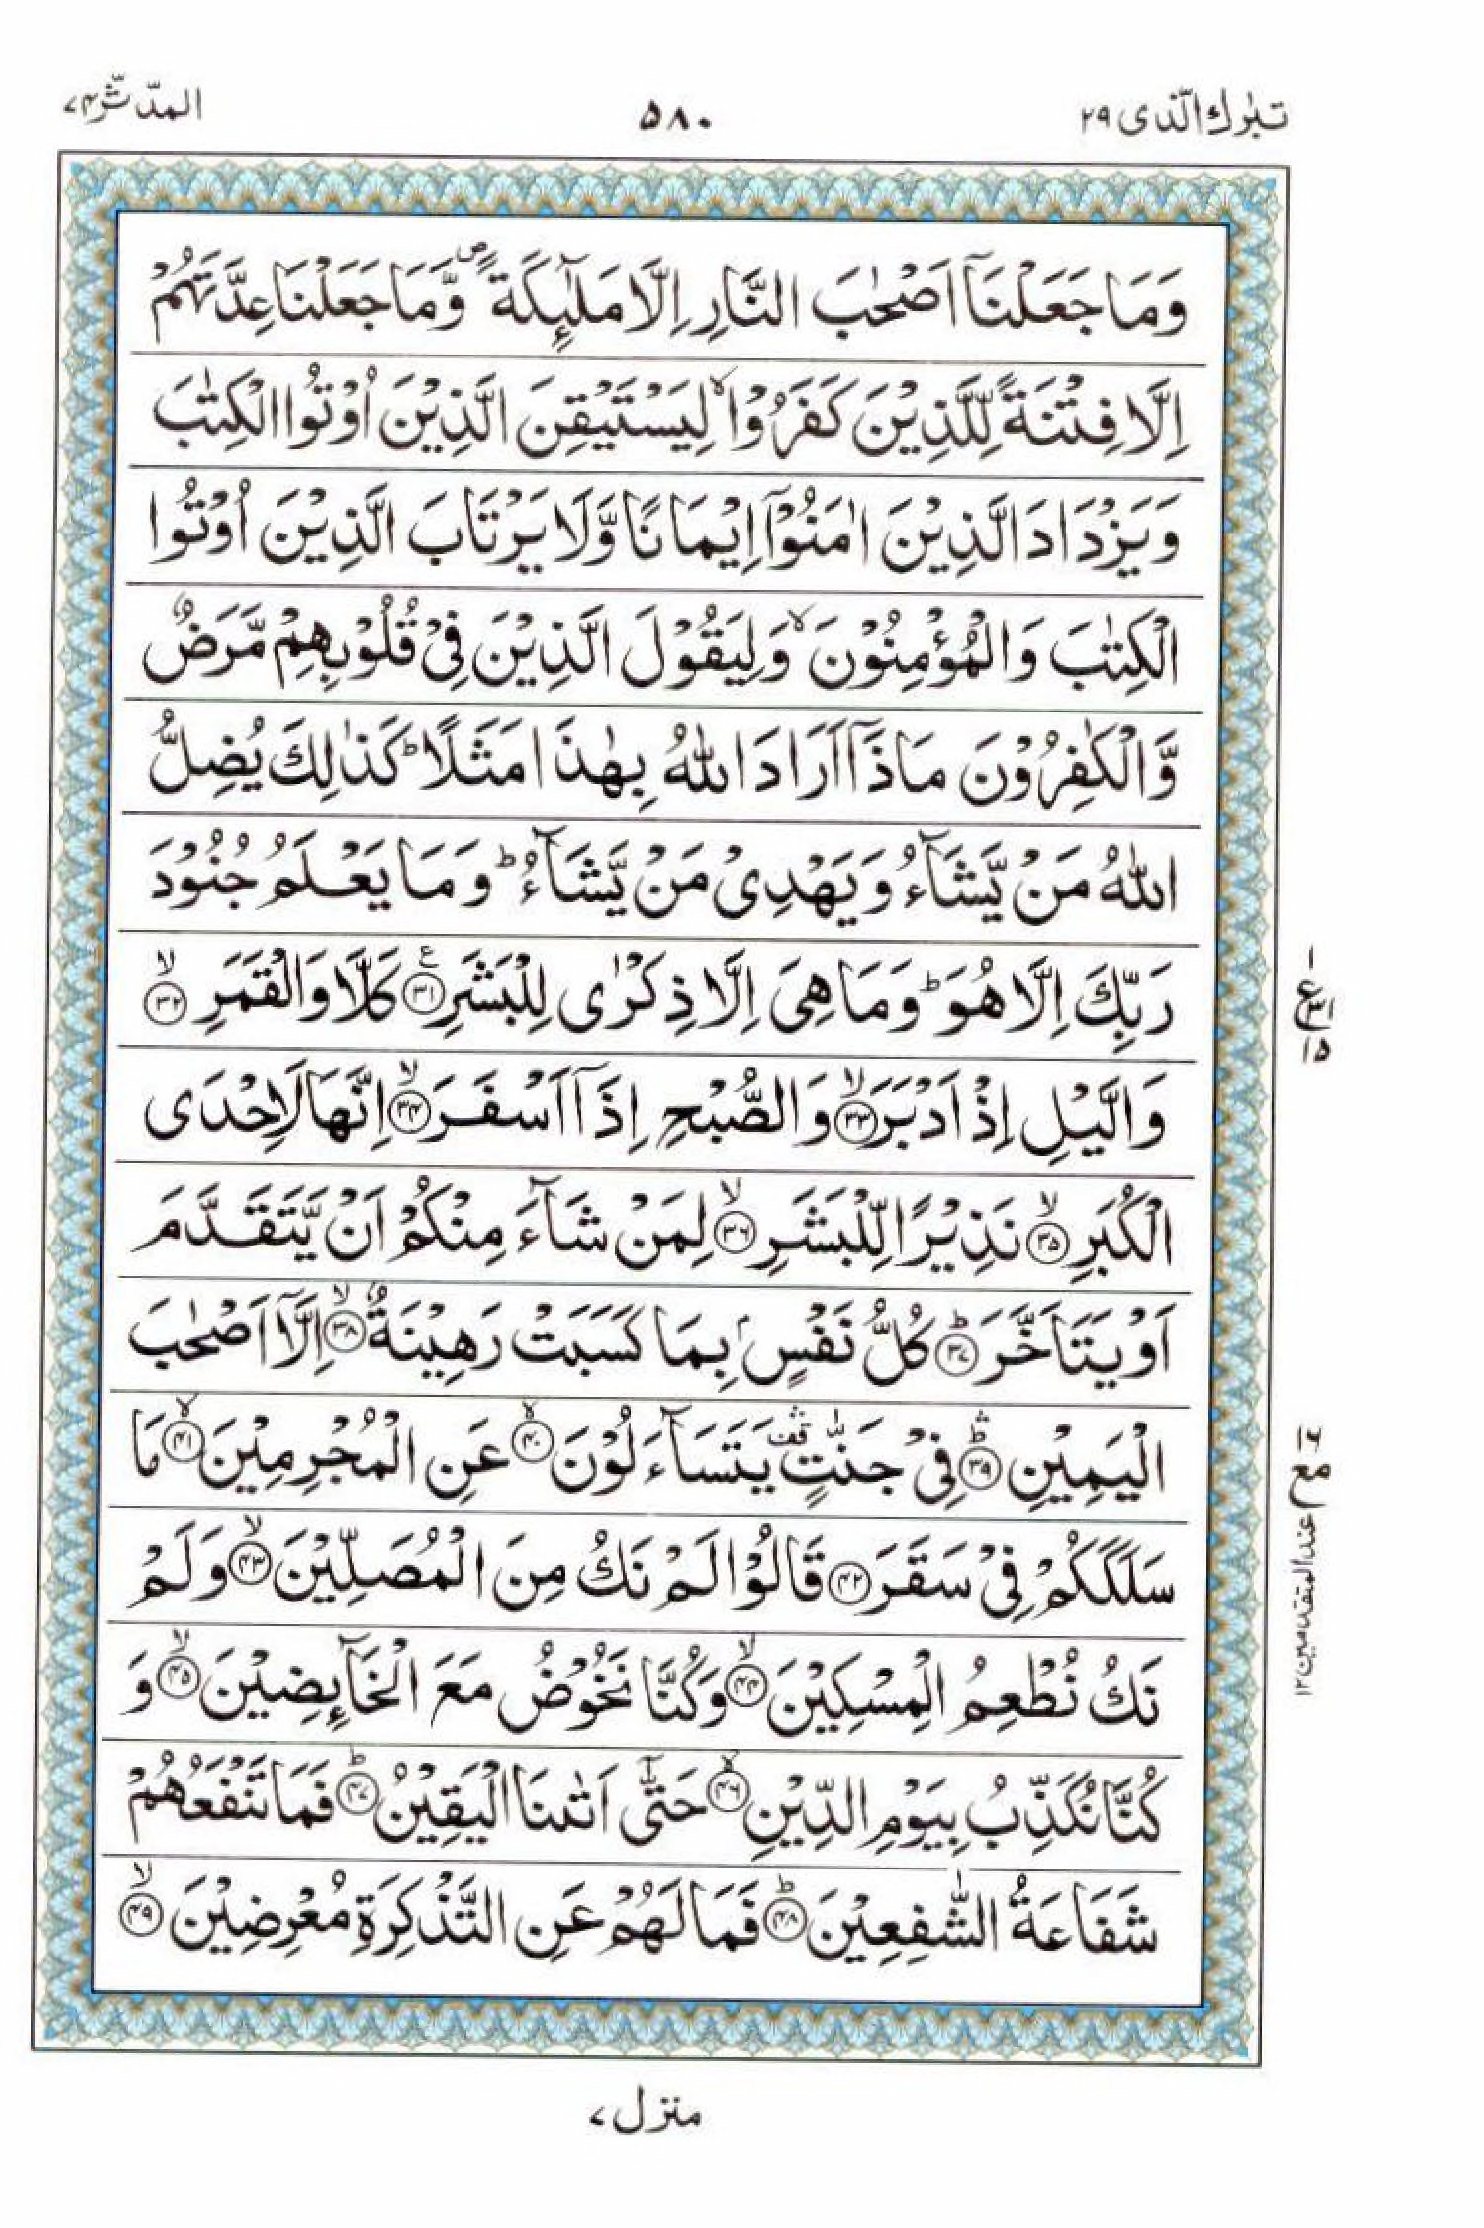 تبٰرك الّذى ٢٩
٥٨٠
المدّثّر ٧٤
وَمَا جَعَلْنَآ اَصْحٰبَ النَّارِ اِلَّا مَلٰٓئِكَةً ۖ وَّمَا جَعَلْنَا عِدَّتَهُمْ
اِلَّا فِتْنَةً لِّلَّذِيْنَ كَفَرُوْا ۙ لِيَسْتَيْقِنَ الَّذِيْنَ اُوْتُوا الْكِتٰبَ
وَيَزْدَادَ الَّذِيْنَ اٰمَنُوْٓا اِيْمَانًا وَّلَا يَرْتَابَ الَّذِيْنَ اُوْتُوا
الْكِتٰبَ وَالْمُؤْمِنُوْنَ ۙ وَلِيَقُوْلَ الَّذِيْنَ فِىْ قُلُوْبِهِمْ مَّرَضٌ
وَّالْكٰفِرُوْنَ مَاذَآ اَرَادَ اللّٰهُ بِهٰذَا مَثَلًا ؕ كَذٰلِكَ يُضِلُّ
اللّٰهُ مَنْ يَّشَآءُ وَيَهْدِىْ مَنْ يَّشَآءُ ؕ وَمَا يَعْلَمُ جُنُوْدَ
رَبِّكَ اِلَّا هُوَ ؕ وَمَا هِىَ اِلَّا ذِكْرٰى لِلْبَشَرِ ﴿٣١﴾ ع كَلَّا وَالْقَمَرِ ۙ ﴿٣٢﴾
وَالَّيْلِ اِذْ اَدْبَرَ ۙ ﴿٣٣﴾ وَالصُّبْحِ اِذَآ اَسْفَرَ ۙ ﴿٣٤﴾ اِنَّهَا لَاِحْدَى
الْكُبَرِ ۙ ﴿٣٥﴾ نَذِيْرًا لِّلْبَشَرِ ۙ ﴿٣٦﴾ لِمَنْ شَآءَ مِنْكُمْ اَنْ يَّتَقَدَّمَ
اَوْ يَتَاَخَّرَ ؕ ﴿٣٧﴾ كُلُّ نَفْسٍۭ بِمَا كَسَبَتْ رَهِيْنَةٌ ۙ ﴿٣٨﴾ اِلَّآ اَصْحٰبَ
الْيَمِيْنِ ؕۛ ﴿٣٩﴾ فِىْ جَنّٰتٍ ۛ قف يَتَسَآءَلُوْنَ ۙ ﴿٤٠﴾ عَنِ الْمُجْرِمِيْنَ ۙ ﴿٤١﴾ مَا
سَلَكَكُمْ فِىْ سَقَرَ ﴿٤٢﴾ قَالُوْا لَمْ نَكُ مِنَ الْمُصَلِّيْنَ ۙ ﴿٤٣﴾ وَلَمْ
نَكُ نُطْعِمُ الْمِسْكِيْنَ ۙ ﴿٤٤﴾ وَكُنَّا نَخُوْضُ مَعَ الْخَآئِضِيْنَ ۙ ﴿٤٥﴾ وَ
كُنَّا نُكَذِّبُ بِيَوْمِ الدِّيْنِ ۙ ﴿٤٦﴾ حَتّٰٓى اَتٰىنَا الْيَقِيْنُ ؕ ﴿٤٧﴾ فَمَا تَنْفَعُهُمْ
شَفَاعَةُ الشّٰفِعِيْنَ ؕ ﴿٤٨﴾ فَمَا لَهُمْ عَنِ التَّذْكِرَةِ مُعْرِضِيْنَ ۙ ﴿٤٩﴾
١
ع
١٥
مع
عند المتقدمين ١٢
منزل ٧